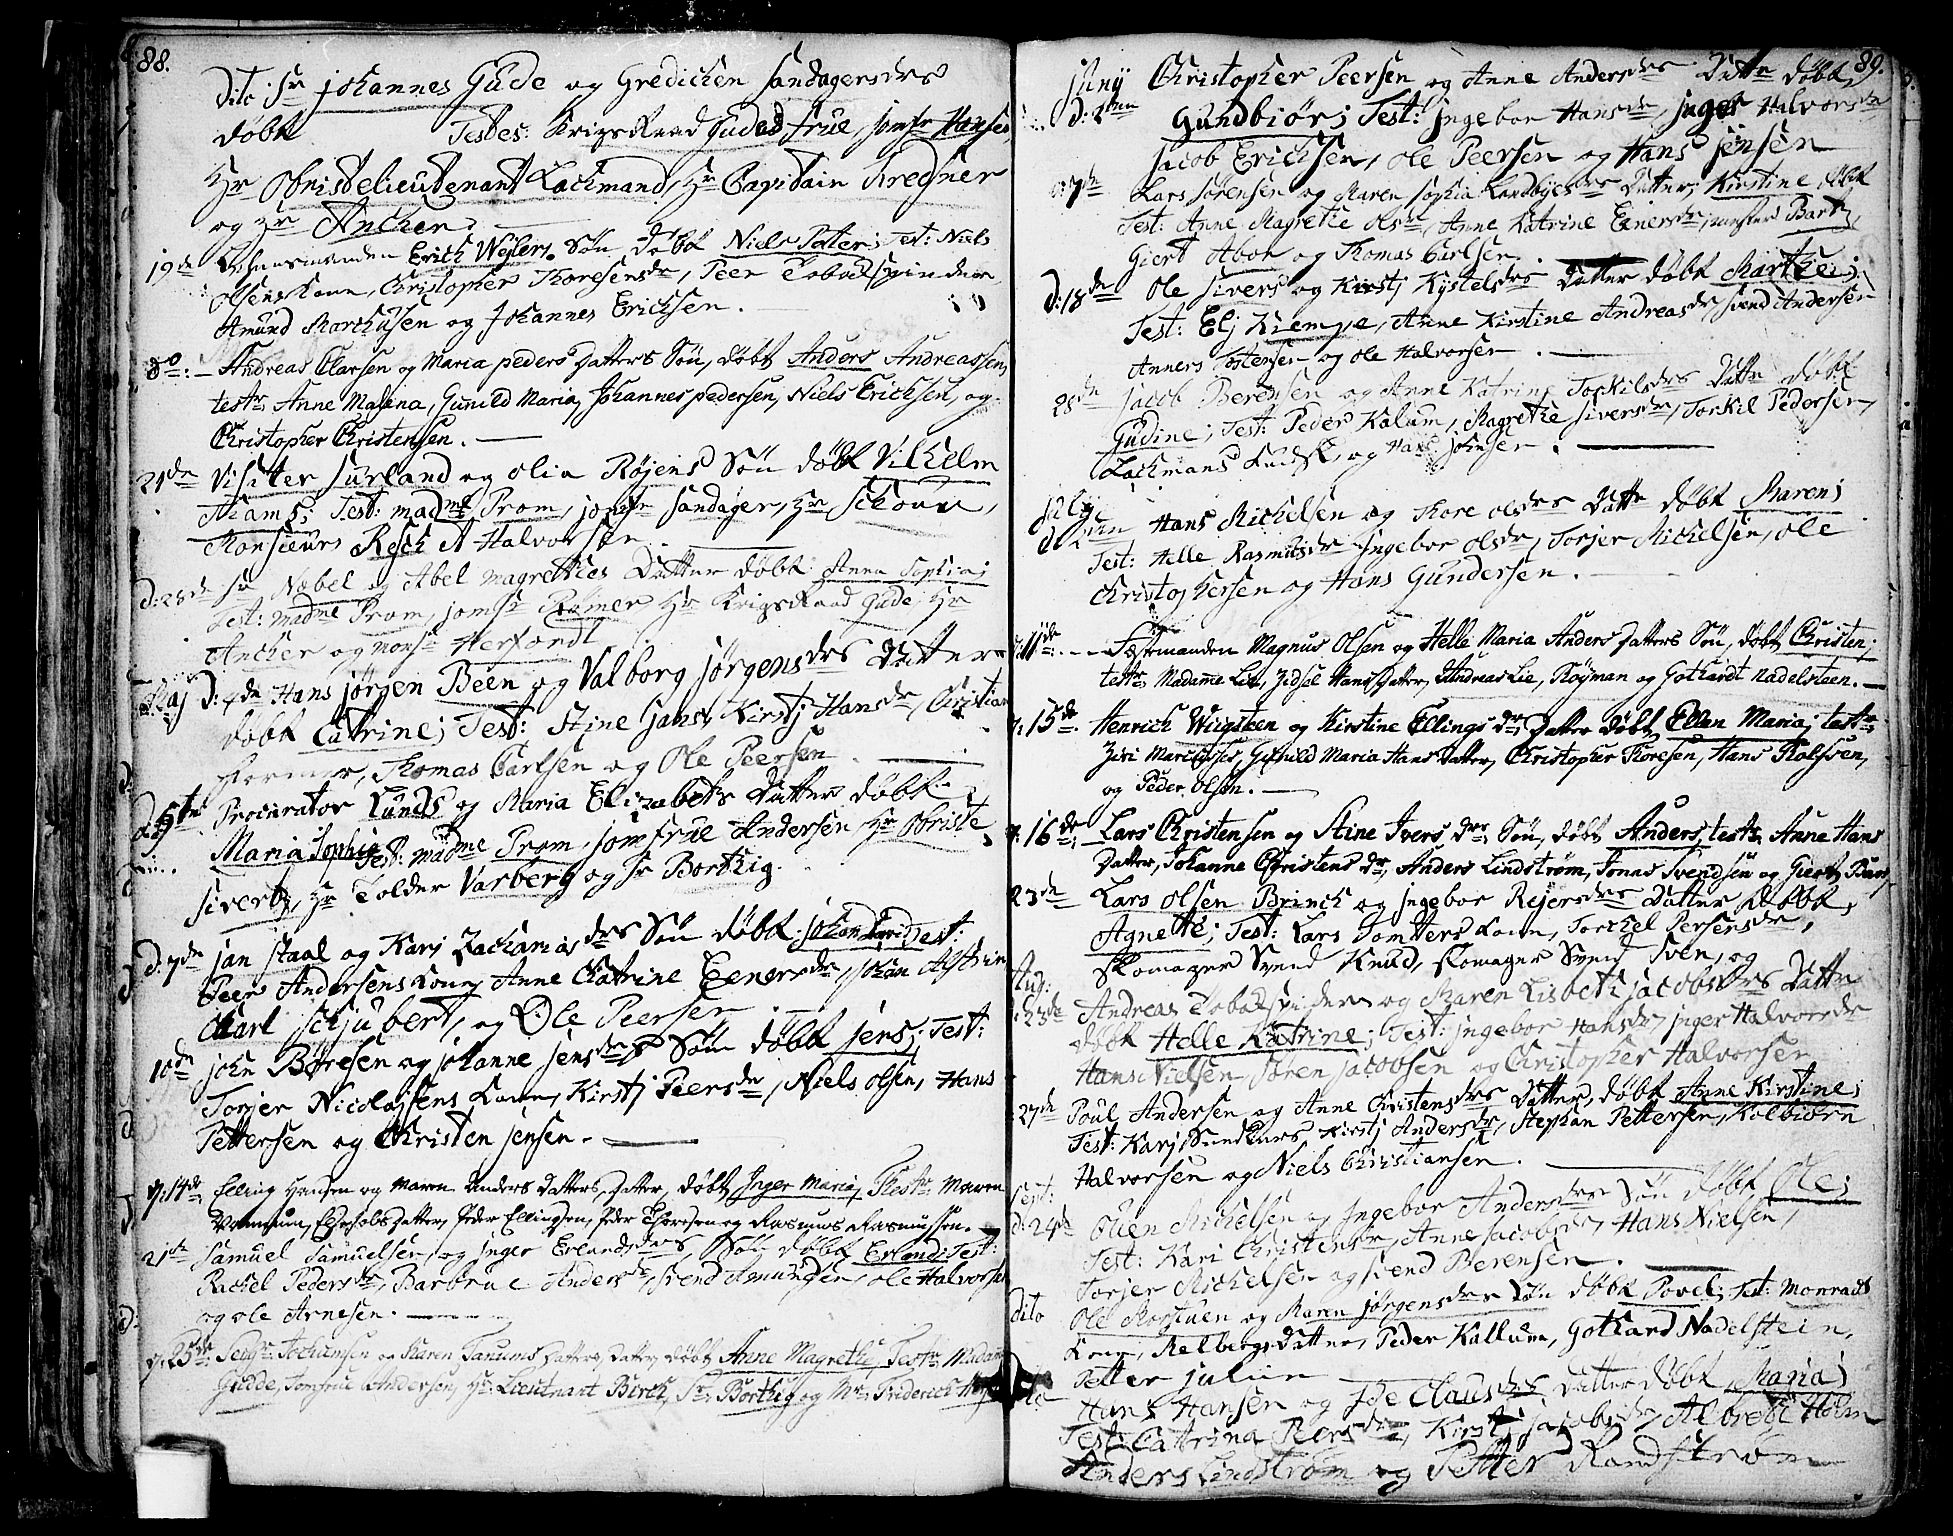 88.
Dito Sr Johannes Gude og Gredichen Sandagersdrs
døbt Testes: Krigsraad Gudes frue, jomfr Hansen,
Hr Obristelieutenant Lachmand, Hr Capitain Kregner
og Hr Ancher.
19de Erich Wejlers Søn døbt Niels Peter; Test: Niels
Olsens Kone, Christopher Thoresensdr, Peer Tobakspinder,
Amund Marchusen og Johannes Erichsen.
do: Andreas Clarsen og Maria peders Datters Søn, døbt Anders Andreassen,
testr Anne Malena, Gunild Maria, Johannes pedersen, Niels Erichsen, og
Christopher Christensen.
21de Visiter Surland og Olia Røjens Søn døbt Vilhelm
Adams; Test: madme Prom, jomfr Sandager, Hr Schouw,
Monsieurs Resch A Halvorsen.
d:28de Sr Nobel og Abel Magrethes Datter døbt Anna Sophia;
Test: madme Prom, jomfr Rømer Hr Krigsraad Gude, Hr
Ancher og monsr Herfordt
Maj d: 4de Hans Jørgen Been og Valborg Jørgensdrs Datter
døbt Catrine; Test: Stine Jans, Kirstj Hansdr, Christian
Former, Thomas Carlsen og Ole Peersen.
d. 5te Procurator Lunds og Maria Elizabets Datter døbt
Maria Sophia Test: madme Prom, jomfrue Andersen, Hr Obriste
Sivertz, Hr Tolder Varberg og Sr Borthig.
d:7de Jan Staal og Karj Zachariasdrs Søn døbt Johan Test:
Peer Andersens Kone, Anne Catrine Eenersdr, Johan Alstrin
Carl Schjubert, og Ole Peersen
10de John Børesen og Johanne Jensdrs Søn døbt Jens; Test:
Torjer Nicolajsens Kone, Kirstj Peersdr, Niels Olsen, Hans
Pettersen og Christen Jensen.
d:14de Elling Hansen og Maren Anders Datters, Datter, døbt Inger Maria, Testr Maren
Vammum, Else Jobs Datter, Peder Ellingsen, Peder Thoresen og Rasmus Rasmussen.
21de Samuel Samuelsen, og Inger Erlandsdrs, Søn døbt Erland; Test:
Rachel Pedersdr, Barbrue Andersdr, Svend Amundsen, Ole Halvorsen
og Ole Arnesen.
d:25de Jochumsen og Karen Tanums Datters, Datter døbt Anne Magrethe, Testr Madame
Gudde, Jomfrue Andersen, Hr: Lieutnant Birch, Sr Borthig og Mr. Friderich
89.
Junij Christopher Peersen og Anne Andersdrs Datter døbt,
d: 2den Gundbiør; Test: Ingebor Hansdr, Inger Halvorsdr
Jacob Erichsen, Ole Peersen og Hans Jensen
d: 7de Lars Sørensen og Maren Sophia Landbyes Datter, Kirstine, døbt
Test: Anne Magrethe Olsdr, Anne Katrine Enersdr, Bartz,
Giert Abor og Thomas Carlsen.
d:18de Ole Sivers og Kirstj Kystelsdrs Datter døbt Marthe;
Test: Elj Kiempe, Anne Kirstine Andreasdr, Svend Andersen
Anners Tostensen og Ole Halvorsen.
25de Jacob Berentsen og Anne Katrine Torkildsdrs Datter døbt
Gudine; Test: Peder Kalum, Magrethe Siversdr, Torkil Pedersen,
Lachmans Kudsk, og Hans Johnsen.
Julij
d. 2den Hans Michelsen og Thore Olsdrs Datter døbt Maren;
Test: Helle Rasmusdr, Ingebor Olsdr, Torjer Michelsen, Ole
Christophersen og Hans Gundersen.
d:11te: Fæstemanden Magnus Olsen og Helle Maria Anders Datters Søn, døbt Christen;
testr, Madame Lie, Zidsel Hans Datter, Andreas Lie, Røyman og Gothardt Nadelsteen.
d:15de. Henrich Wiigsteen og Kirstine Ellings dr: Datter døbt, Ellen Maria; testr
Ziri Marcusses, Gunild Maria Hans Datter, Christopher Thoresen, Hans Rolfsen,
og Peder Olsen.
d: 16de Lars Christensen og Stine Ivers drs Søn, døbt Anders, testr. Anne Hans
Datter, Johanne Christens dr, Anders Lindstrøm, Jonas Svendsen og Giert Bars.
23de Lars Olsen Brinch og Ingebor Rejersdrs Datter døbt
Agnethe; Test: Lars Tomters Kone, Torchel Persensdr,
Skomager Svend Knud, Skomager Svend Iven, og
Aug:
d:23de Andreas Tobakspinders og Maren Lisbeth Jacobsdrs Datter
døbt Helle Katrine; Test: Ingebor Hansdr, Inger Halvorsdr
Hans Nielsen, Søren Jacobsen og Christopher Halvorsen
27de Poul Andersen og Anne Christensdrs Datter, døbt Anne Kirstine;
Test: Karj Sundkurs, Kirstj Andersdr, Stephan Pettersen, Kolbiørn
Halvorsen og Niels Christiansen.
Sept:
d:24de Ouen Michelsen og Ingebor Andersdrs Søn døbt Ole;
Test: Kari Christensdr, Anne Jacobsdr, Hans Nielsen,
Torjer Michelsen og Svend Berensen.
dito Ole Morstuen og Maren Jørgensdrs Søn døbt Povel; Test: Monrads
Kone, Relbergs Datter, Peder Kallum, Gothard Nadelstein,
Petter Julin
Hans Hansen og Ide Clausdrs Datter døbt Maria;
Test: Cattrina Peersdr, Kirstj Jacobsdr, Albregt Holm
Anders Lindstrøm og Petter Randstrøm